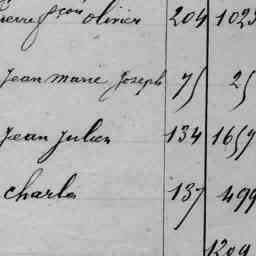 Pierre françois olivier 204 1023
Jean marie Joseph 75 25
Jean Julien 134 1659
charles 137 499
1209